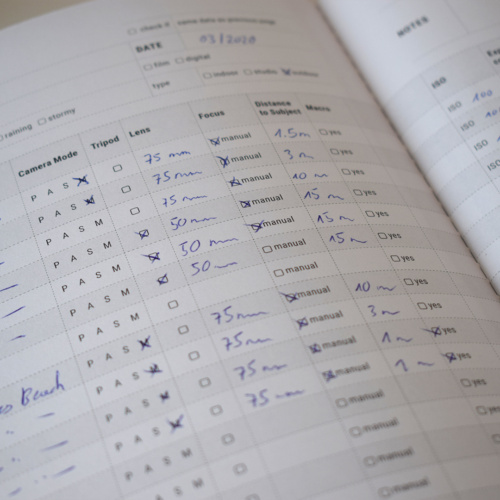 check if same data as previous page
DATE 03/2020
film digital
type indoor studio outdoor
raining stormy
Camera Mode Tripod Lens Focus Distance to Subject Macro
P A S M 75 mm manual 1.5m yes
P A S M 75 mm manual 3 m yes
P A S M 75 mm manual 10 m yes
P A S M 50 mm manual 15 m yes
P A S M 50 mm manual 15 m yes
P A S M 50 mm manual 15 m yes
P A S M manual yes
P A S M 75 mm manual 10 m yes
P A S M 75 mm manual 3 m yes
P A S M 75 mm manual 1 m yes
Beach P A S M 75 mm manual 1 m yes
P A S M manual yes
manual yes
manual
NOTES
ISO
ISO 100
ISO
ISO